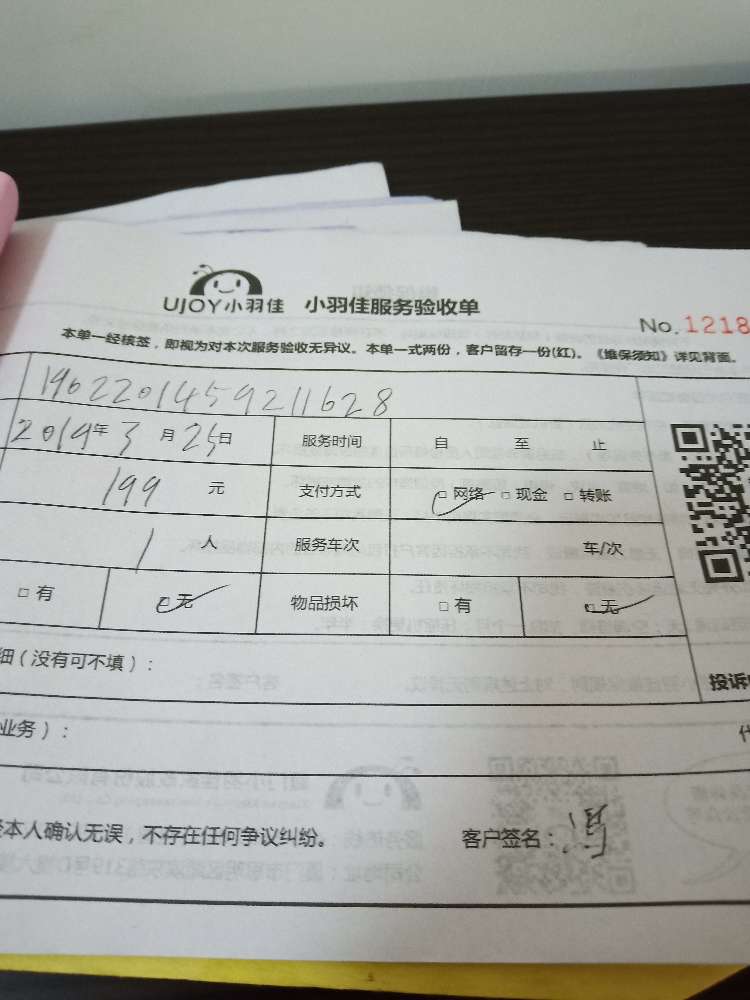 UJOY小羽佳 小羽佳服务验收单
No.1218
本单一经核签，即视为对本次服务验收无异议。本单一式两份，客户留存一份(红)。《维保须知》详见背面。
1962201459211628
2019年3月25日 服务时间 自 至 止
199 元 支付方式 □网络 □现金 □转账
1 人 服务车次 车/次
□有 □无 物品损坏 □有 □无
细（没有可不填）：
投诉
业务）：
本人确认无误，不存在任何争议纠纷。 客户签名：